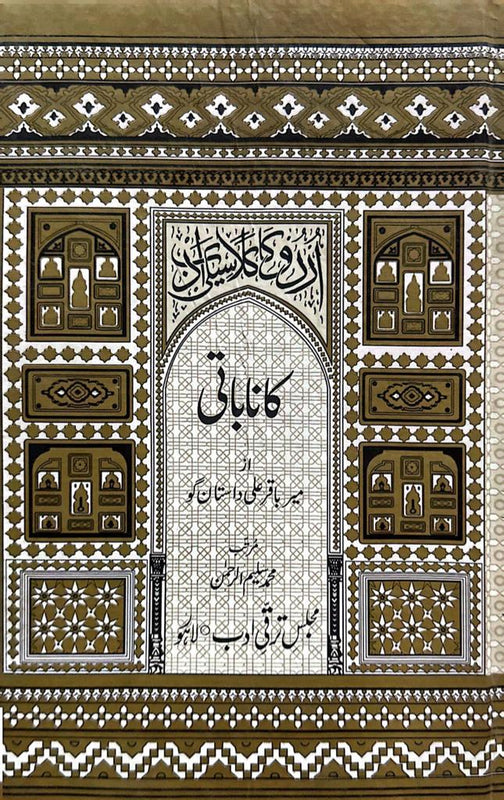 اردو کا کلاسیکی ادب
کانا باتی
از
میر باقر علی داستان گو
مرتبہ
محمد سلیم الرحمن
مجلس ترقی ادب ○ لاہور